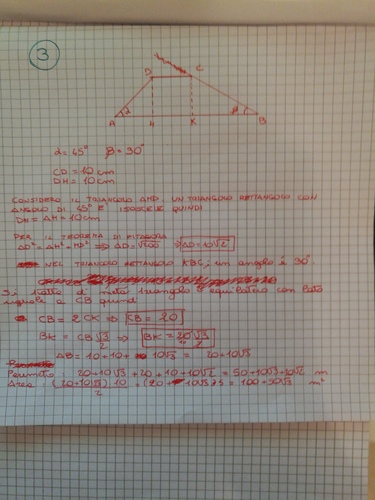 3
D C
α β
A H K B
α = 45° β = 30°
CD = 10 cm
DH = 10 cm
CONSIDERO IL TRIANGOLO AHD. UN TRIANGOLO RETTANGOLO CON
ANGOLO DI 45° E ISOSCELE QUINDI
DH = AH = 10 cm
PER IL TEOREMA DI PITAGORA
AD² = AH² + HD² ⇒ AD = √200 ⇒ AD = 10√2
NEL TRIANGOLO RETTANGOLO KBC, un angolo è 30°
Si tratta di metà triangolo equilatero con lato
uguale a CB quindi
CB = 2CK ⇒ CB = 20
BK = CB√3/2 ⇒ BK = 20√3/2
AB = 10 + 10 + 10√3 = 20 + 10√3
Perimetro: 20 + 10√3 + 20 + 10 + 10√2 = 50 + 10√3 + 10√2 m
Area = (20 + 10√3) 10 / 2 = (20 + 10√3) 5 = 100 + 50√3 m²